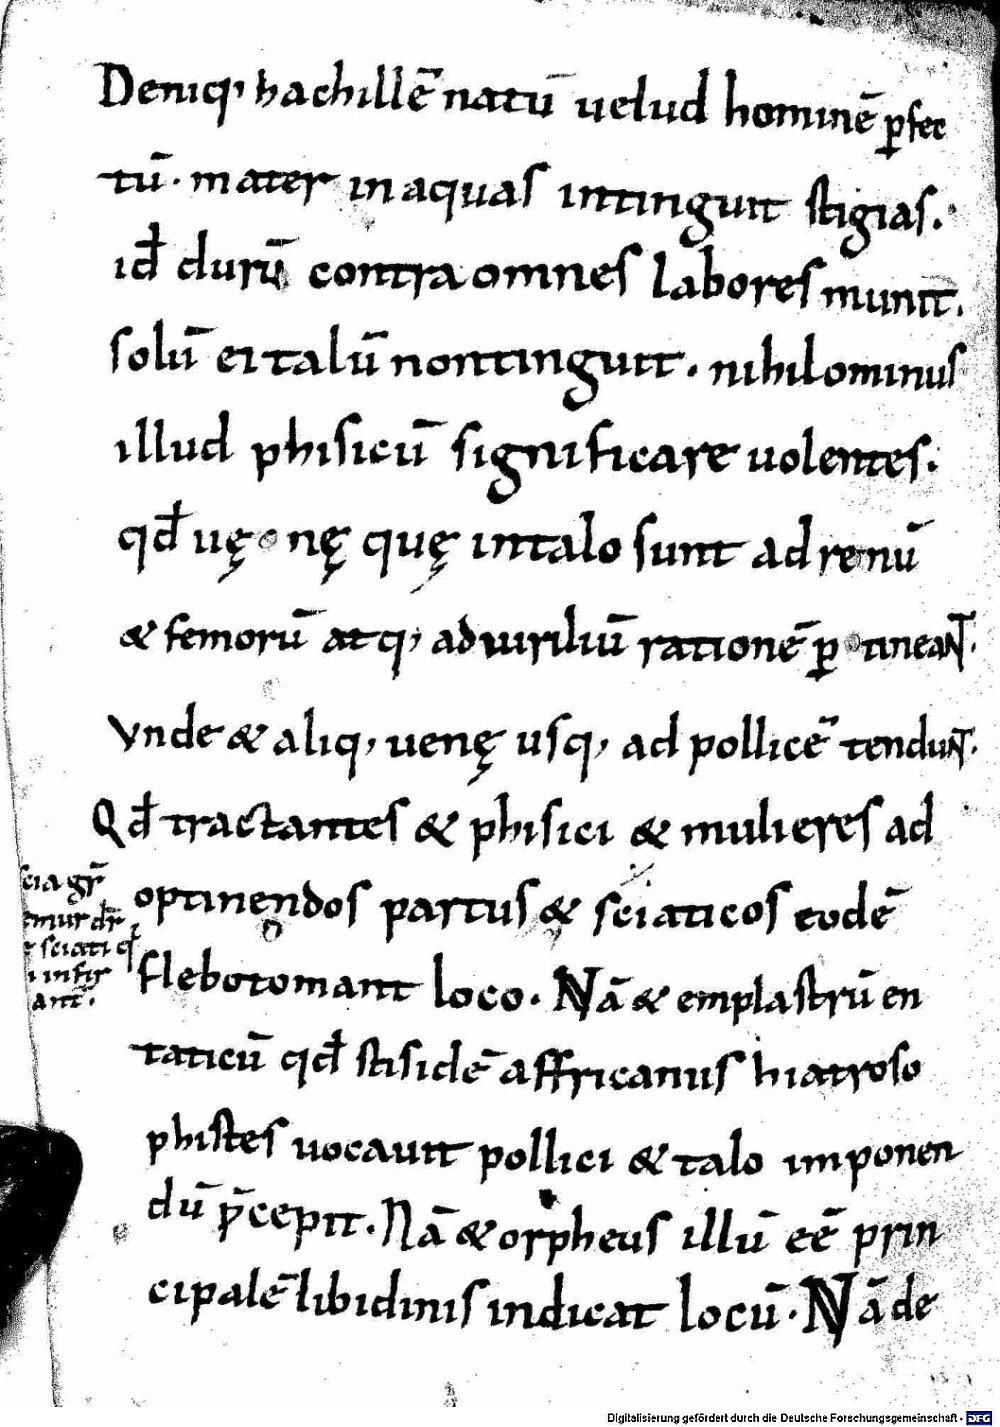 Deniq; hachillē natū uelud hominē p̱fec
tū. mater in aquas intinguit stigias.
id̄ durū contra omnes labores munit.
solū ei talū non tinguit. nihilominus
illud phisicū significare uolentes.
qd̄ uę nę quę in talo sunt ad renū
& femorū atq; ad uiriliū rationē p̱ tineaNT.
Vnde & aliq; uenę usq; ad pollicē tenduNT.
Qd̄ tractantes & phisici & mulieres ad
optinendos partus & sciaticos eodē
flebotomant loco. Nā & emplastrū en
taticū qd̄ stisidē affricanus hiatroso
phistes uocauit pollici & talo imponen
dū p̄cepit. Nā & orpheus illū eē prin
cipalē libidinis indicat locū. Nā de
scia gr̄
emur dr̄
sciati q̄
infir
ant.
Digitalisierung gefördert durch die Deutsche Forschungsgemeinschaft - DFG